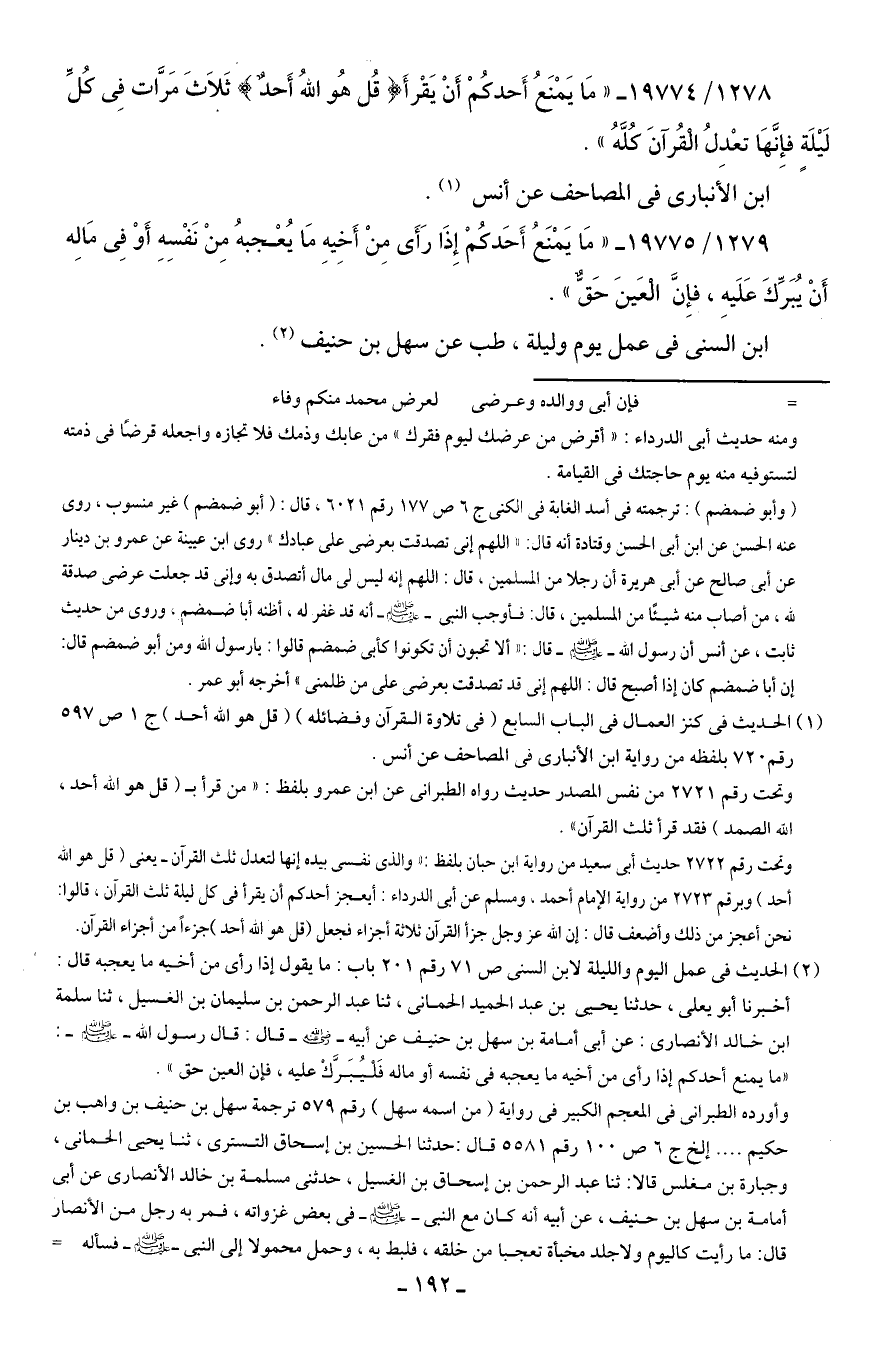 ١٢٧٨/ ١٩٧٧٤ـ « مَا يَمْنَعُ أَحدكُمْ أَنْ يَقْرأَ﴿ قُل هُو اللهُ أَحدٌ ﴾ ثَلاَثَ مَرَّات فِى كُلِّ
لَيْلَةٍ فإِنَّهَا تعْدِلُ الْقُرآنَ كُلَّهُ » .
ابن الأنبارى فى المصاحف عن أنس (١) .
١٢٧٩/ ١٩٧٧٥ـ « مَا يَمْنَعُ أَحَدكُمْ إِذَا رَأَى مِنْ أَخيِه مَا يُعْـجبهُ مِنْ نَفْسِهِ أَوْ فِى مَالِه
أَنْ يُبَرِّكَ عَلَيهِ ، فإِنَّ الْعَينَ حَقٌّ » .
ابن السنى فى عمل يوم وليلة ، طب عن سهل بن حنيف (٢) .
= فإن أبى ووالده وعـرضى لعرض محمد منكم وفاء
ومنه حديث أبى الدرداء : « أقرض من عرضك ليوم فقرك » من عابك وذمك فلا تجازه واجعله قرضًا فى ذمته
لتستوفيه منه يوم حاجتك فى القيامة .
( وأبو ضمضم ) : ترجمته فى أسد الغابة فى الكنى ج ٦ ص ١٧٧ رقم ٦٠٢١ ، قال : ( أبو ضمضم ) غير منسوب ، روى
عنه الحسن عن ابن أبى الحسن وقتادة أنه قال: « اللهم إنى تصدقت بعرضى على عبادك » روى ابن عيينة عن عمرو بن دينار
عن أبى صالح عن أبى هريرة أن رجلا من المسلمين ، قال : اللهم إنه ليس لى مال أتصدق به وإنى قد جعلت عرضى صدقة
لله ، من أصاب منه شيـئًا من المسلمين ، قال: فـأوجب النبى ـ ﷺ ـ أنه قد غفر له ، أظنه أبا ضـمضم ، وروى من حديث
ثابت ، عن أنس أن رسول الله ـ ﷺ ـ قال :« ألا تحبون أن تكونوا كأبى ضمضم قالوا : يارسول الله ومن أبو ضمضم قال:
إن أبا ضمضم كان إذا أصبح قال : اللهم إنى قد تصدقت بعرضى على من ظلمنى » أخرجه أبو عمر .
(١) الحديث فى كنز العمـال فى البـاب السابع ( فى تلاوة القـرآن وفـضائله ) ( قل هو الله أحـد ) ج ١ ص ٥٩٧
رقم ٧٢٠ بلفظه من رواية ابن الأنبارى فى المصاحف عن أنس .
وتحت رقم ٢٧٢١ من نفس المصدر حديث رواه الطبرانى عن ابن عمرو بلفظ : « من قرأ بـ ( قل هو الله أحد ،
الله الصمد ) فقد قرأ ثلث القرآن» .
وتحت رقم ٢٧٢٢ حديث أبى سعيد من رواية ابن حبان بلفظ :« والذى نفـسى بيده إنها لتعدل ثلث القرآن ـ يعنى ( قل هو الله
أحد ) وبرقم ٢٧٢٣ من رواية الإمام أحمد ، ومسلم عن أبى الدرداء : أيعـجز أحدكم أن يقرأ فى كل ليلة ثلث القرآن ، قالوا:
نحن أعجز من ذلك وأضعف قال : إن الله عز وجل جزأ القرآن ثلاثة أجزاء فجعل (قل هو الله أحد )جزءاً من أجزاء القرآن.
(٢) الحديث فى عمل اليوم والليلة لابن السنى ص ٧١ رقم ٢٠١ باب : ما يقول إذا رأى من أخـيه ما يعجبه قال :
أخـبرنا أبو يعلى ، حدثنا يحيـى بن عبد الحميد الحمـانى ، ثنا عبد الرحمن بن سليمان بن الغـسيل ، ثنا سلمة
ابن خـالد الأنصارى : عن أبى أمـامة بن سهل بن حنيـف عن أبيه ـ رضي الله عنه ـ قـال : قـال رسـول الله ـ ﷺ ـ :
«ما يمنع أحدكم إذا رأى من أخيه ما يعجبه فى نفسه أو ماله فَلْـيُـبَـرَّكْ عليه ، فإن العين حق » .
وأورده الطبرانى فى المعجم الكبير فى رواية ( من اسمه سهل ) رقم ٥٧٩ ترجمة سهل بن حنيف بن واهب بن
حكيم .... إلخ ج ٦ ص ١٠٠ رقم ٥٥٨١ قـال :حدثنا الحـسين بن إسـحاق التـسترى ، ثنـا يحيى الحـمانى ،
وجبارة بن مـغلس قالا: ثنا عبد الرحمن بن إسـحاق بن الغسيل ، حدثنى مسلمة بن خالد الأنصارى عن أبى
أمامـة بن سهل بن حـنيف ، عن أبيه أنه كـان مع النبى ـ ﷺ ـ فى بعض غزواته ، فـمر به رجل مـن الأنصار
قال: ما رأيت كاليوم ولاجلد مخبأة تعجـبا من خلقه ، فلبط به ، وحمل محمولا إلى النبى ـ ﷺ ـ فسأله =
ـ ١٩٢ ـ